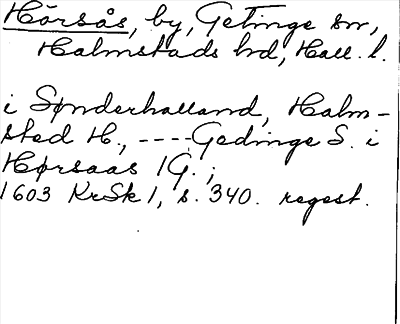 Hörsås, by, Getinge sn,
Halmstads hd, Hall. l.
i Sønderhalland, Halm-
sted H., ----Gedinge S. i
Hørsaas 1 G.;
1603 KrSk 1, s. 340. regest.